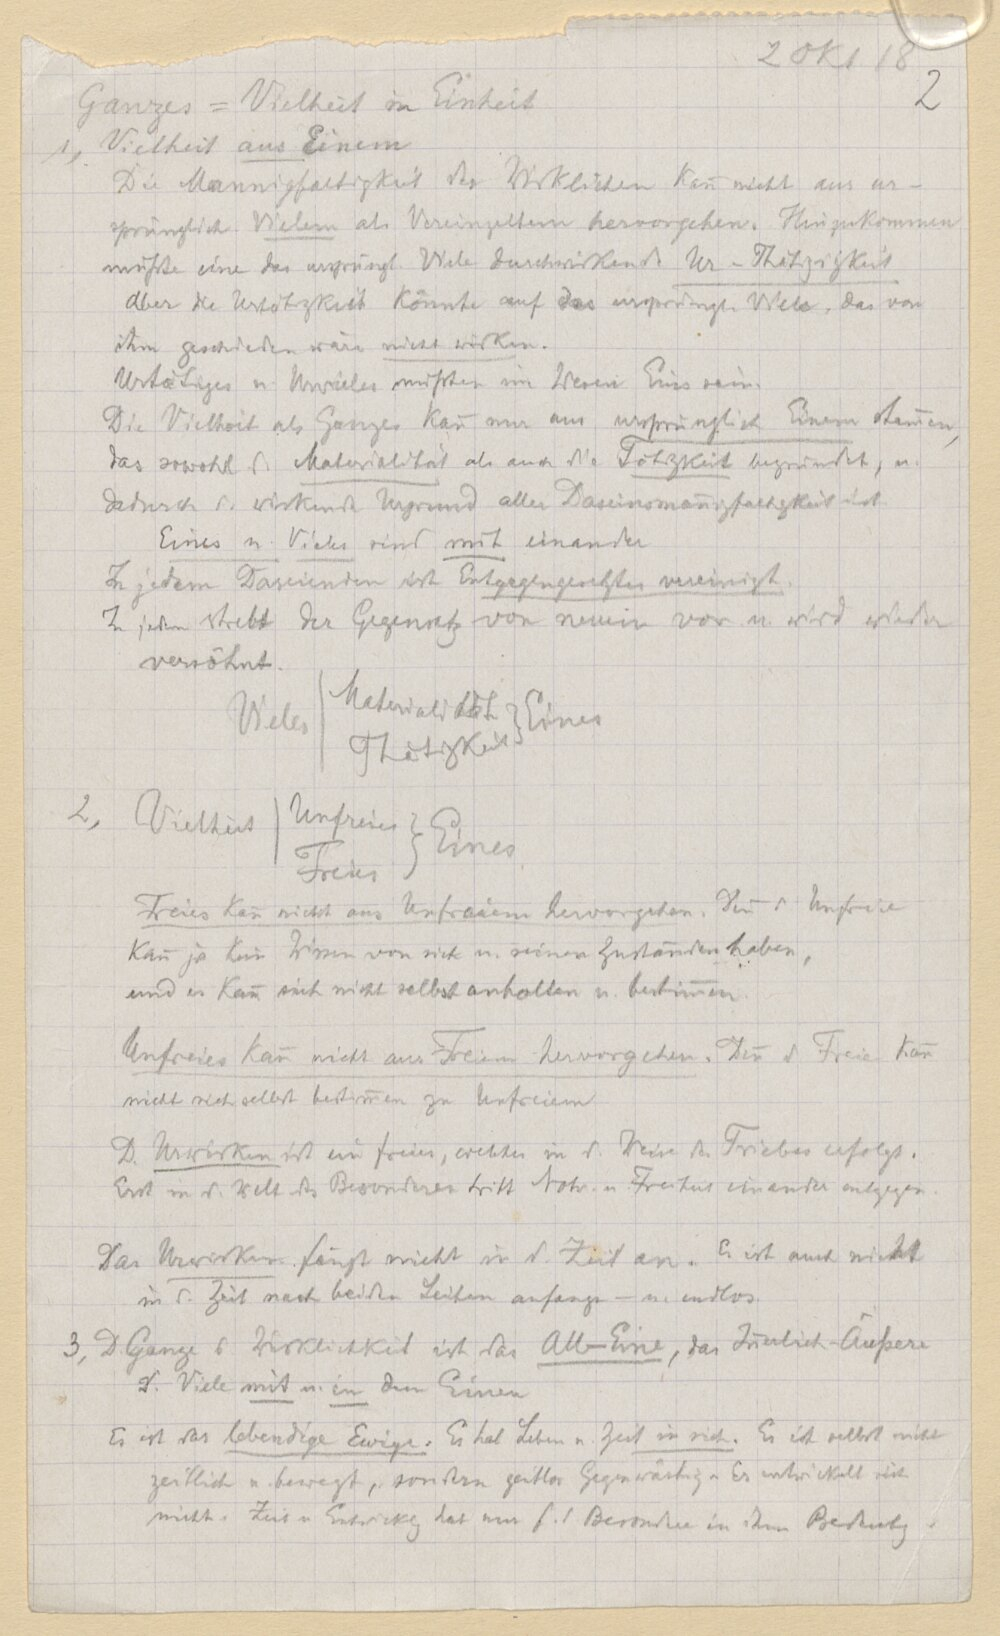 2 Okt 18
2
Ganzes = Vielheit in Einheit
1, Vielheit aus Einem
Die Mannigfaltigkeit des Wirklichen kan̄ nicht aus ur-
sprünglich Vielem als Vereinzeltem hervorgehen. Hinzukommen
müßte eine das ursprüngl Viele durchwirkende Ur-Thätigkeit
Aber die Urtätigkeit könnte auf das ursprüngl. Viele, das von
ihm geschieden wäre nicht wirken.
Urtätiges u. Urvieles müßten im Wesen Eins sein.
Die Vielheit als Ganzes kan̄ nur aus ursprünglich Einem stam̄en,
das sowohl d. Materialität als auch die Tätigkeit begründet, u.
dadurch d. wirkende Urgrund aller Daseinsman̄igfaltigkeit ist
Eines u. Vieles sind mit einander
In jedem Daseienden ist Entgegengesetztes vereinigt.
In jedem strebt der Gegensatz von neuem vor u. wird wieder
versöhnt.
Vieles Materialität Eines
Thätigkeit
2, Vielheit Unfreies Eines
Freies
Freies kan̄ nicht aus Unfreiem hervorgehen. Den̄ d Unfreie
kan̄ ja kein Wissen von sich u. seinen Zuständen haben,
und es kan̄ sich nicht selbst anhalten u. bestim̄en.
Unfreies kan̄ nicht aus Freiem hervorgehen. Den̄ d Freie kan̄
nicht sich selbst bestim̄en zu Unfreiem
D. Urwirken ist ein freies, welches in d. Weise des Triebes erfolgt.
Erst in d. Welt des Besonderen tritt Notw. u. Freiheit einander entgegen.
Das Urwirken fängt nicht in d. Zeit an. Es ist auch nicht
in d. Zeit nach beiden Seiten anfangs- u. endlos.
3, D Ganze d Wirklichkeit ist das All-Eine, das In̄erlich-Äußere
d. Viele mit u. in dem Einen
Es ist das lebendige Ewige. Es hat Leben u. Zeit in sich. Es ist selbst nicht
zeitlich u. bewegt, sondern zeitlos Gegenwärtig. Es entwickelt sich
nicht. Zeit u Entwickg hat nur f. d Besondere in ihm Bedeutg.